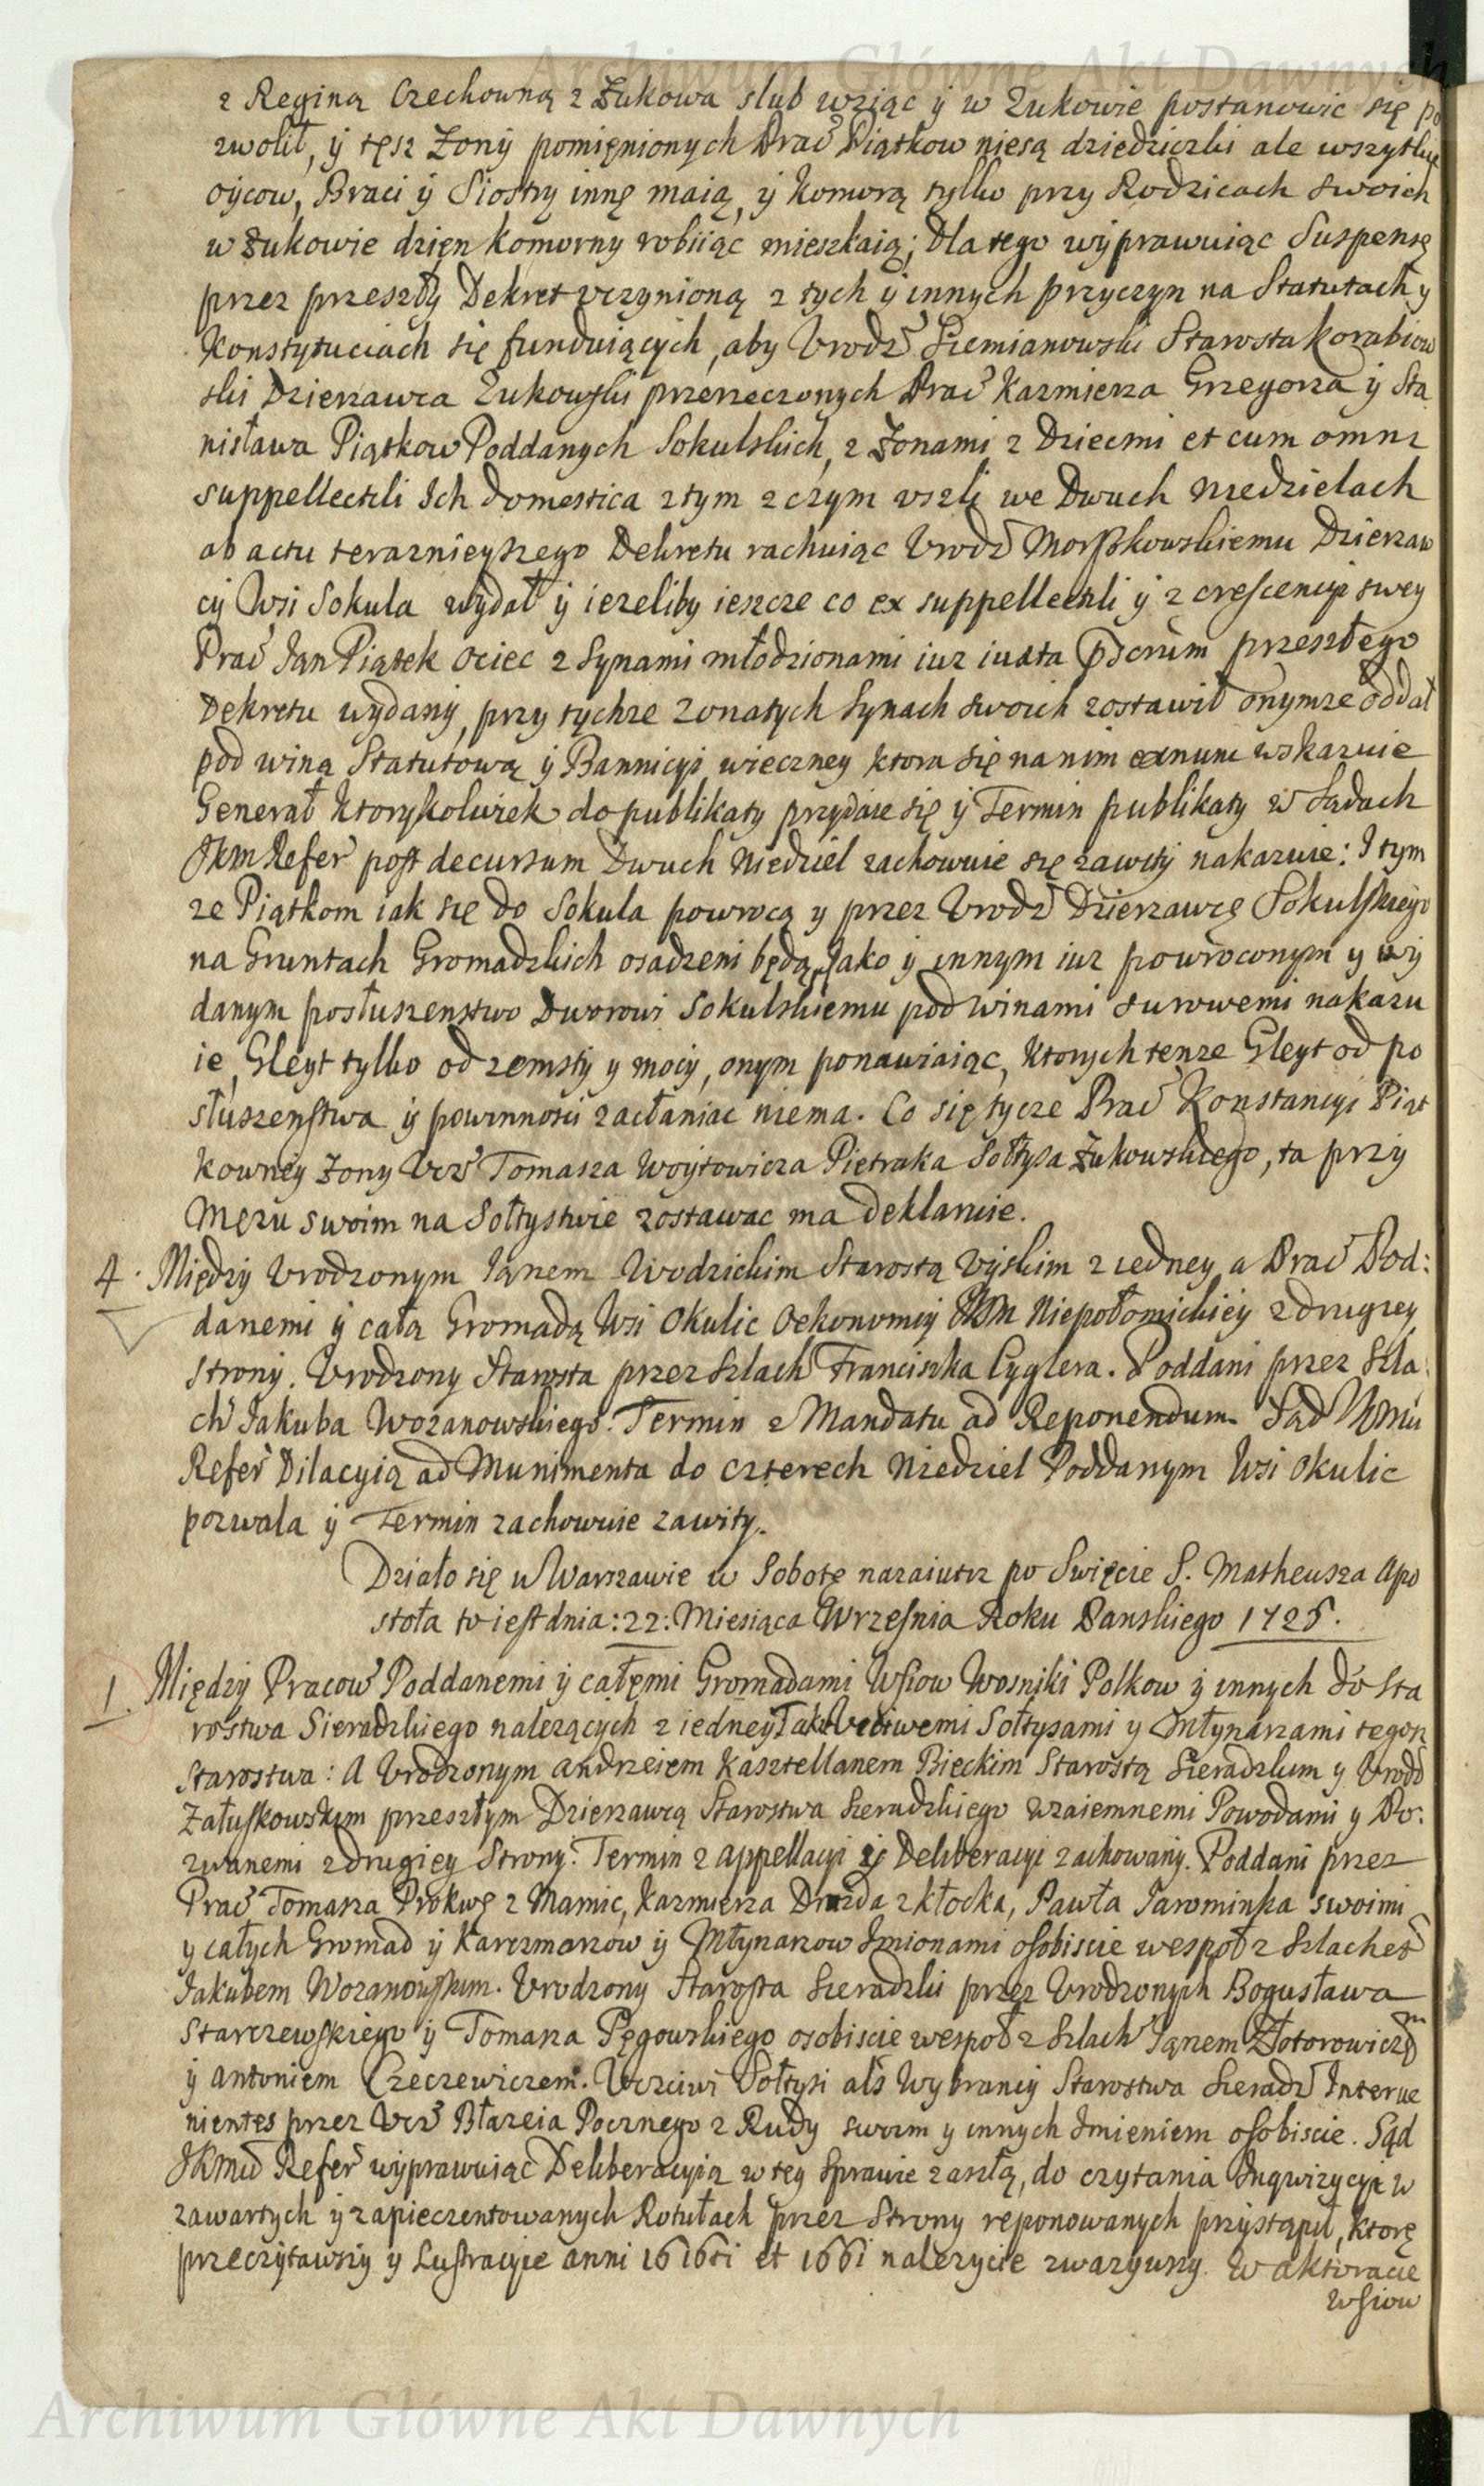 Archiwum Główne Akt Dawnych
z Reginą Czechowną z Żukowa slub wziąc ÿ w Zukowie postanowic się po
zwolił, ÿ tęsz Zonÿ pomięnionych Prac̃ Piątkow niesą dziedziczki ale wszytkie
oÿcow, Braci ÿ Siostrÿ innę maią, ÿ Komorą tylko przy Rodzicach swoich
w Żukowie dzięn komorny robiąc mieszkaią; Dla tego wÿprawuiąc Suspensę
przez przeszłÿ Dekret vczynioną z tych ÿ innych przyczyn na Statutach y
Konstytuciach się funduiących, aby Vrodz̃ Siemianowski Starosta Korabiow
ski Dzierzawca Zukowski przerzeczonych Prac̃ Kazmierza Grzegorza ÿ Sta
nisława Piątkow Poddanych Sokulskich, z Żonami z Dziecmi et cum omni
suppellectili Ich domestica z tym z czym vszli we Dwuch niedzielach
ab actu teraznieyszego Dekretu rachuiąc Vrodz̃ Morskowskiemu Dzierzaw
cÿ Wsi Sokula wÿdał ÿ iezeliby ieszcze co ex suppellectili ÿ z crescencÿi swey
Prac̃ Jan Piątek Ociec z Synami młodzionami iuz iuxta przeszłego
Dekretu wÿdanÿ, przy tychze Zonatych Synach swoich zostawił onymze oddał
pod winą Statutową ÿ Bannicÿi wieczney ktora się na nim exnunc wskazuie
Generał Ktorÿkolwiek do publikaty przydaie się ÿ Termin publikaty w Sądach
JKm Refer̃ post decursum Dwuch Niedziel zachowuie się zawitÿ nakazuie: I tym
ze Piątkom iak się do Sokula powrocą y przez Vrodz̃ Dzierzawcę Sokulskiego
na Gruntach Gromadzkich osadzeni będą, Jako ÿ innym iuz powroconym y wÿ
danym posłuszenstwo Dworowi Sokulskiemu pod winami surowemi nakazu
ie, Gleyt tylko od zemsty y mocÿ, onym ponawiaiąc, ktorych tenze Gleyt od po
słuszenstwa ÿ powinnosci zasłaniac niema. Co się tycze Prac̃ Konstancyi Piąt
kownęÿ Żony Vcz̃ Tomasza Woytowicza Pietraka Sołtysa Żukowskiego, ta przÿ
Męzu swoim na Sołtystwie zostawac ma deklaruie.
4. Międzÿ Vrodzonym Janem Wodzickim Starostą Wÿskim z iedney a Prac̃ Pod:
danemi ÿ całą Gromadą Wsi Okulic Oekonomiÿ JKM Niepołomickieÿ z drugiey
strony. Vrodzony Starosta przez Szlach̃ Franciszka Cyglera. Poddani przez Szla
ch̃ Jakuba Wozanowskiego. Termin z Mandatu ad Reponendum. Sąd JKmci
Refer̃ Dilacyią ad Munimenta do czterech Niedziel Poddanym Wsi Okulic
pozwala ÿ Termin zachowuie zawity.
Działo się w Warszawie w Sobotę nazaiutrz po Swięcie S. Matheusza Apo
stoła to iest dnia: 22: Miesiąca Wrzesnia Roku Panskiego 1725.
1. Międzÿ Pracow̃ Poddanemi ÿ całęmi Gromadami Wsiow Wosniki Polkow ÿ innych do Sta
rostwa Sieradzkiego nalezących z iedneÿ Takze Vcciwemi Sołtysami y Młynarzami tegoz
Starostwa: A Vrodzonym Andrzeiem Kasztellanem Bieckim Starostą Sieradzkim y Vrodz̃
Załuskowskim przeszłym Dzierzawcą Starostwa Sieradzkiego wzaiemnemi Powodami y Po:
zwanemi z drugiey Strony. Termin z Appellacyi ÿ Deliberacyi zachowanÿ. Poddani przez
Prac̃ Tomasza Prokwę z Mamic, Kazmierza Drozda z Kłocka, Pawła Jarominka swoimi
y całych Gromad ÿ Karczmarzow ÿ Młynarzow Imionami osobiscie wespoł z Szlachet̃
Jakubem Wozanowskim. Vrodzony Starosta Sieradzki przez Vrodzonych Bogusława
Starczewskiego ÿ Tomasza Pęgowskiego osobiscie wespoł z Szlach̃ Janem Złotorowiczem
ÿ Antoniem Czeczewiczem. Vczciwi Sołtysi als̃ Wybrancÿ Starostwa Sieradz̃ Interve
nientes przez Vcz̃ Błazeia Pocznego z Rudy swoim y innych Imieniem osobiscie. Sąd
JKmci Refer̃ wÿprawuiąc Deliberacyią w tey Sprawie zaszłą, do czytania Inqwizycyi w
zawartych ÿ zapieczentowanych Rotułach przez Strony reponowanych przystąpił, ktorę
przeczÿtawszÿ y Lustracyie anni 1616ti et 1661 nalezycie zwazywszy. W aktoracie
Wsiow
Archiwum Główne Akt Dawnych